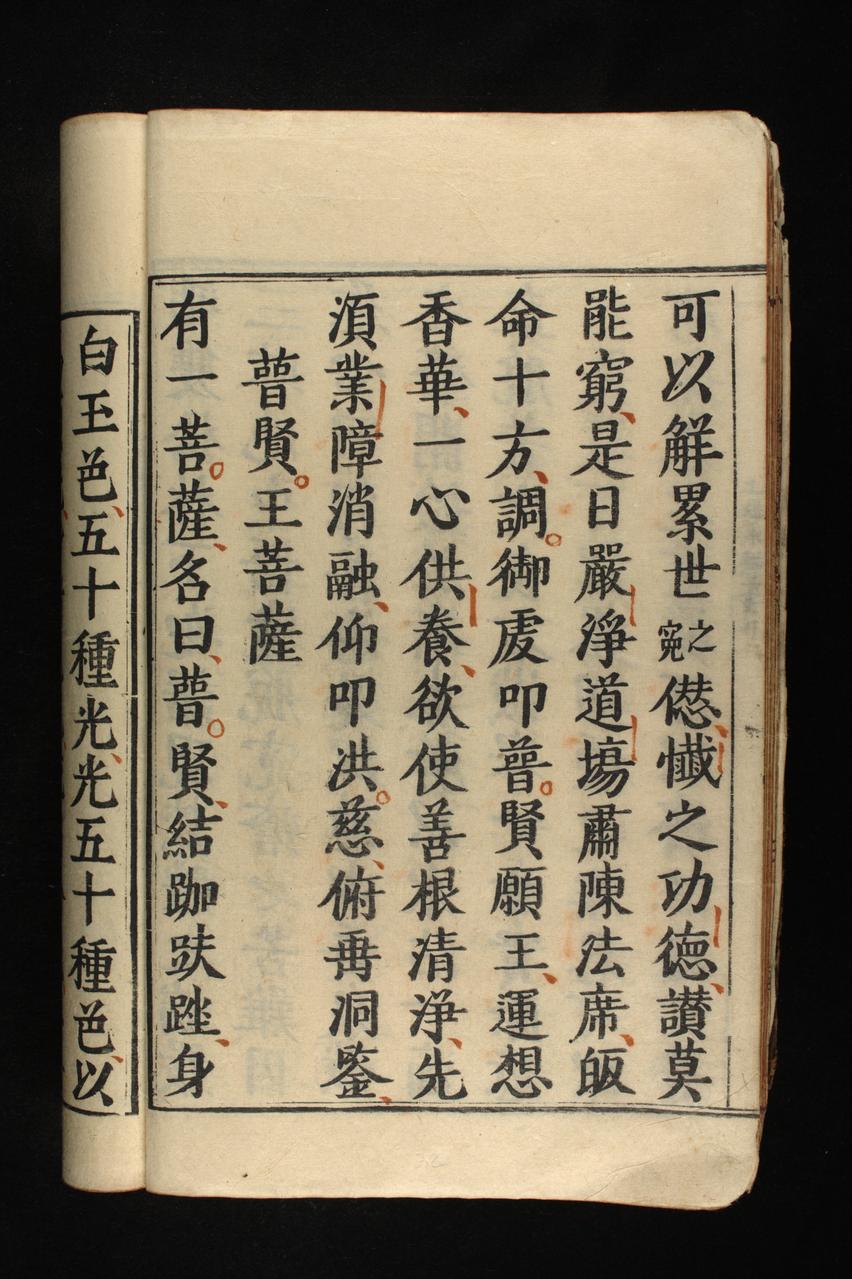 可以解累世之寃愆懴之功德讃莫
能窮是日嚴淨道塲肅陳法席皈
命十方調御虔叩普賢願王運想
香華一心供養欲使善根清淨先
湏業障消融仰叩洪慈俯垂洞鍳
普賢王菩薩
有一菩薩名曰普賢結跏趺𫝑身
白玉色五十種光光五十種色以